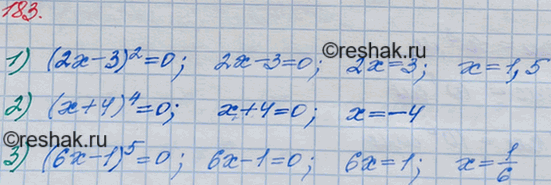 183.
©reshak.ru
1) (2x-3)²=0; 2x-3=0; 2x=3; x=1,5
2) (x+4)⁴=0; x+4=0; x=-4
©reshak.ru
3) (6x-1)⁵=0; 6x-1=0; 6x=1; x=1/6